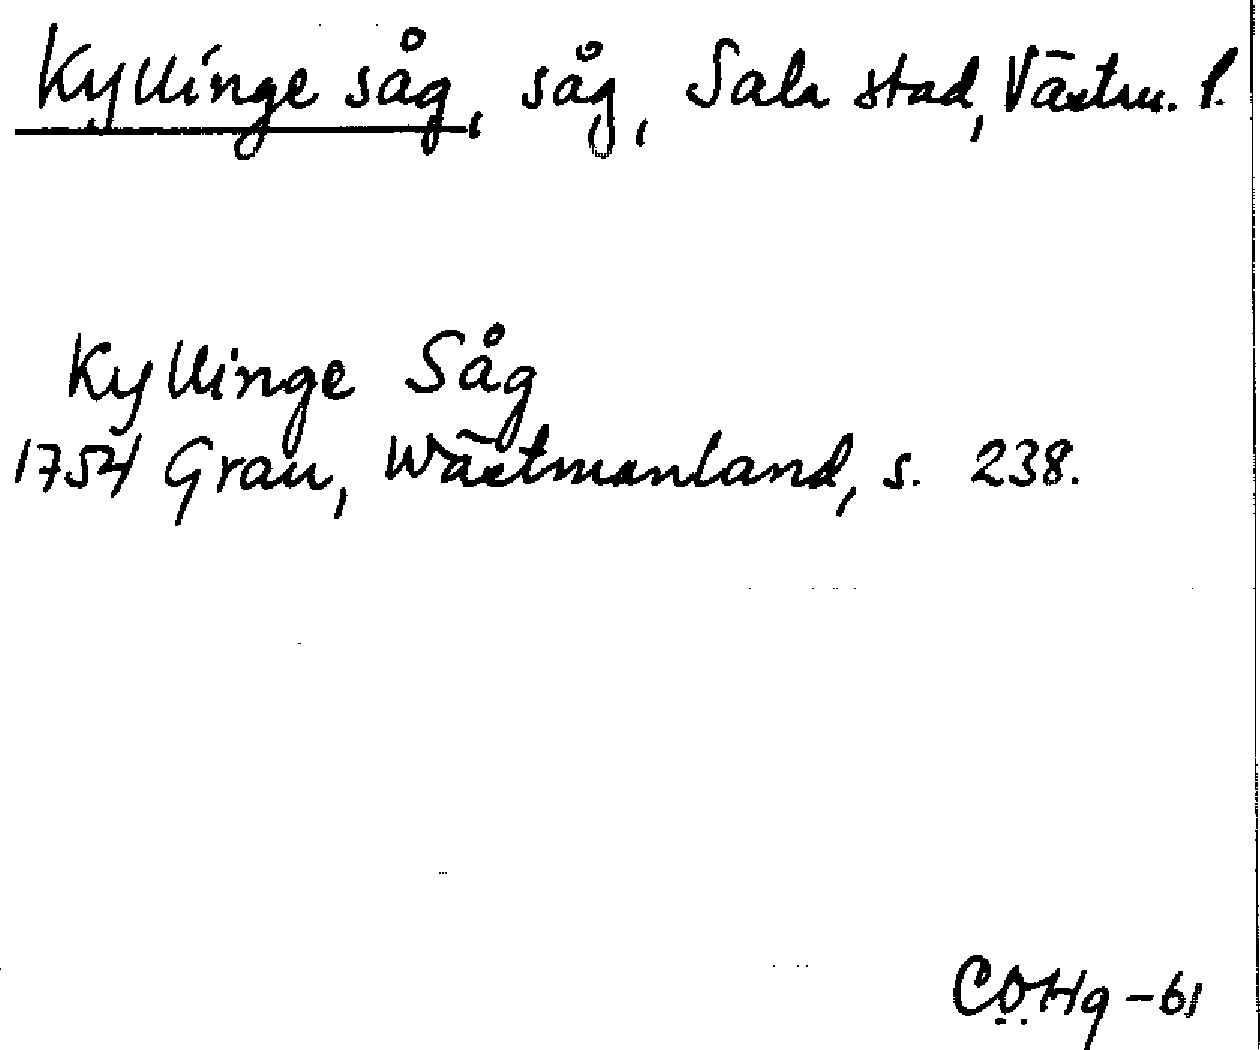 Kyllinge såg, såg, Sala stad, Västm. l.
Kyllinge Såg
1754 Grau, Wästmanland, s. 238.
CÖHg-61